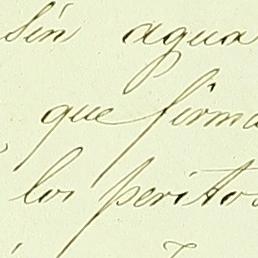 sin agua
que firma
los peritos